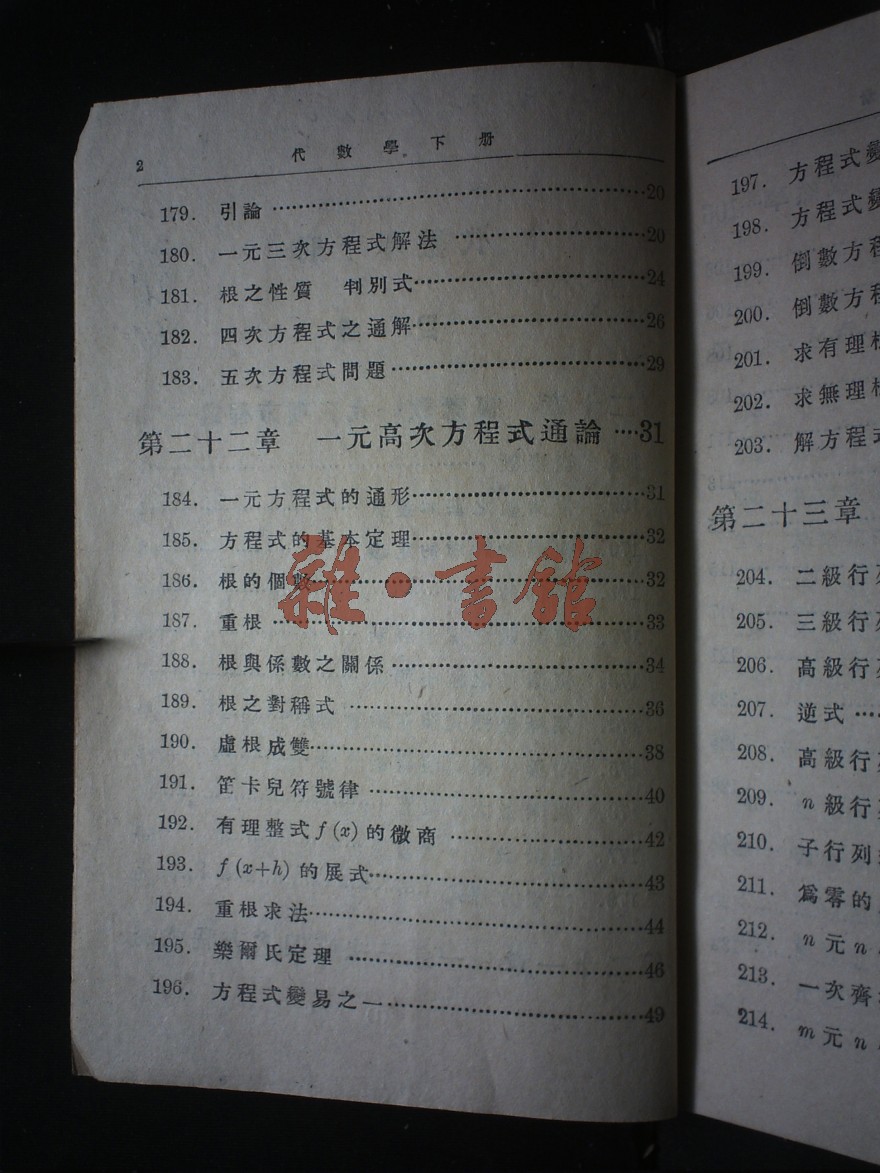 2 代數學下册
179. 引論 ………20
180. 一元三次方程式解法 ………20
181. 根之性質 判別式………24
182. 四次方程式之通解………26
183. 五次方程式問題………29
第二十二章 一元高次方程式通論 …31
184. 一元方程式的通形………31
185. 方程式的基本定理………32
186. 根的個數………32
187. 重根………33
188. 根與係數之關係………34
189. 根之對稱式 ………36
190. 虛根成雙………38
191. 笛卡兒符號律 ………40
192. 有理整式 f(x) 的微商 ………42
193. f(x+h) 的展式………43
194. 重根求法………44
195. 樂爾氏定理 ………46
196. 方程式變易之一………49
雜·書館
197. 方程式變
198. 方程式變
199. 倒數方程
200. 倒數方程
201. 求有理根
202. 求無理根
203. 解方程式
第二十三章
204. 二級行列
205. 三級行列
206. 高級行列
207. 逆式 …
208. 高級行列
209. n級行列
210. 子行列
211. 爲零的
212. n元n
213. 一次齊
214. m元n